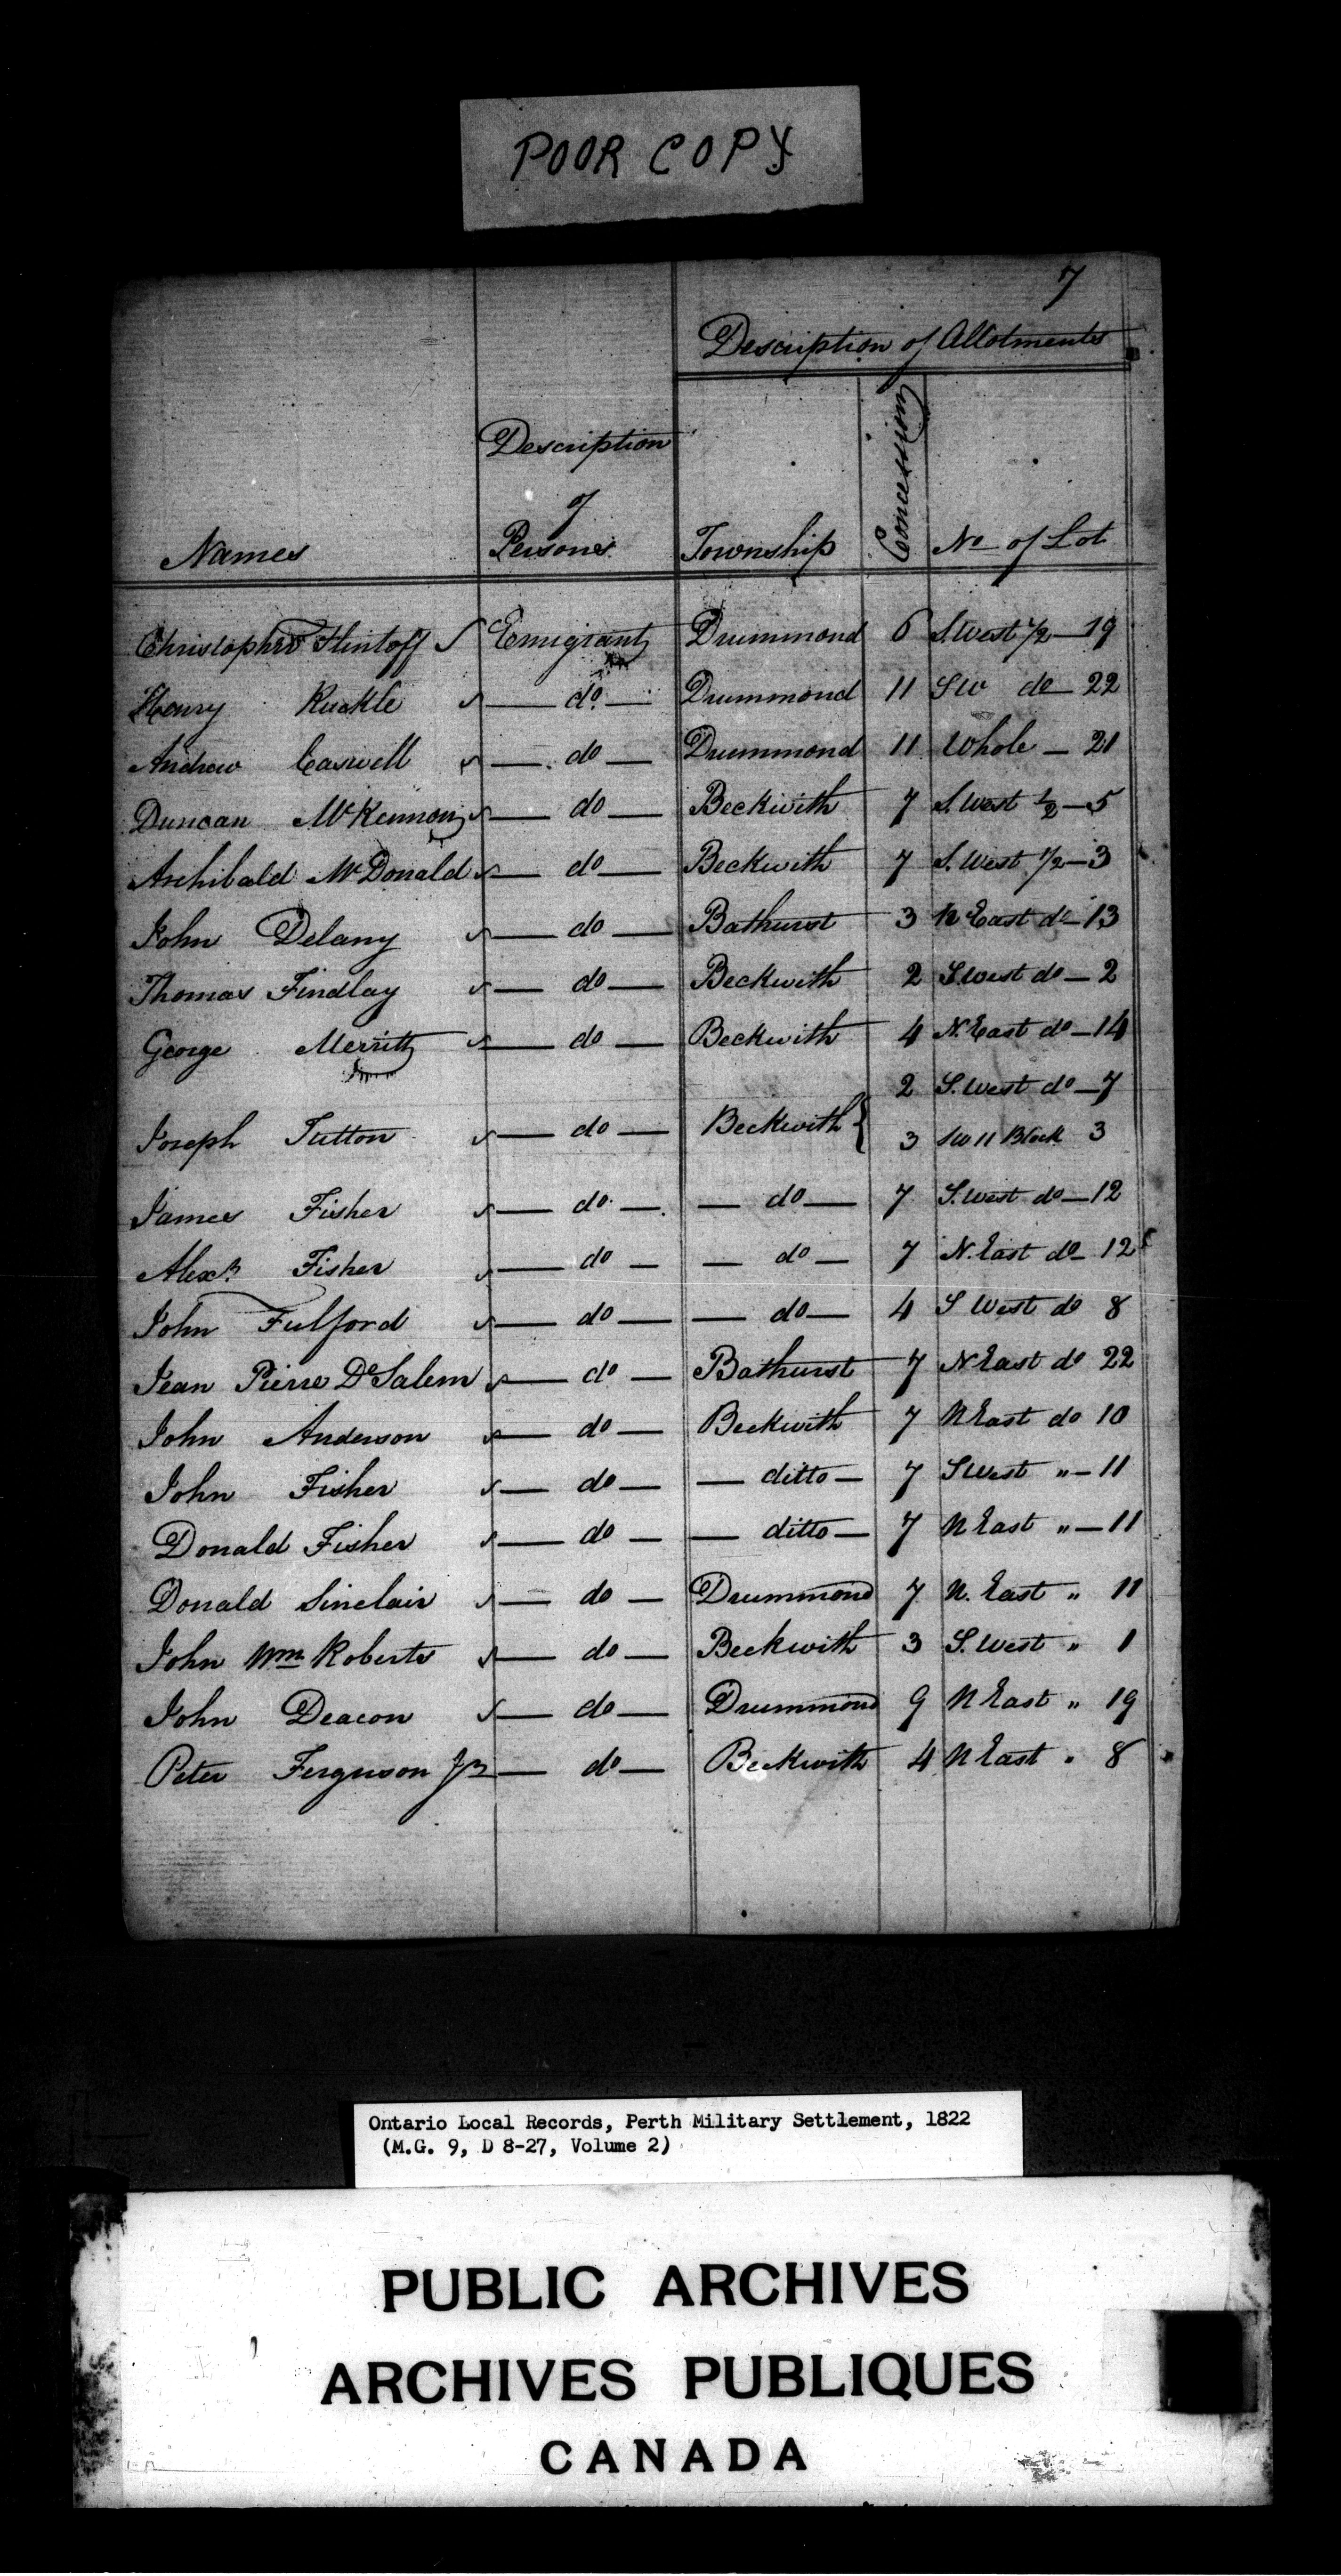 POOR COPY
7
Description of Allotments
Description
of
Names Persons Township Concession No of Lot
Christopher Flintoff Emigrant Drummond 6 S West 1/2 — 19
Henry Ruckle — do — Drummond 11 S W do — 22
Andrew Caswell — do — Drummond 11 Whole — 21
Duncan McKennon — do — Beckwith 7 S. West 1/2 — 5
Archibald McDonald — do — Beckwith 7 S. West 1/2 — 3
John Delany — do — Bathurst 3 N East do — 13
Thomas Findlay — do — Beckwith 2 S. West do — 2
George Merritt — do — Beckwith 4 N. East do — 14
2 S. West do — 7
Joseph Tutton — do — Beckwith { 3 SW 11 Block 3
James Fisher — do — — do — 7 S. West do — 12
Alexr Fisher — do — — do — 7 N. East do — 12
John Fulford — do — — do — 4 S West do 8
Jean Pierre De Salem — do — Bathurst 7 N East do 22
John Anderson — do — Beckwith 7 N East do 10
John Fisher — do — — ditto — 7 S West " — 11
Donald Fisher — do — — ditto — 7 N East " — 11
Donald Sinclair — do — Drummond 7 N. East " 11
John Wm Roberts — do — Beckwith 3 S. West " 1
John Deacon — do — Drummond 9 N East " 19
Peter Ferguson Jr — do — Beckwith 4 N East " 8
Ontario Local Records, Perth Military Settlement, 1822
(M.G. 9, D 8-27, Volume 2)
PUBLIC ARCHIVES
ARCHIVES PUBLIQUES
CANADA